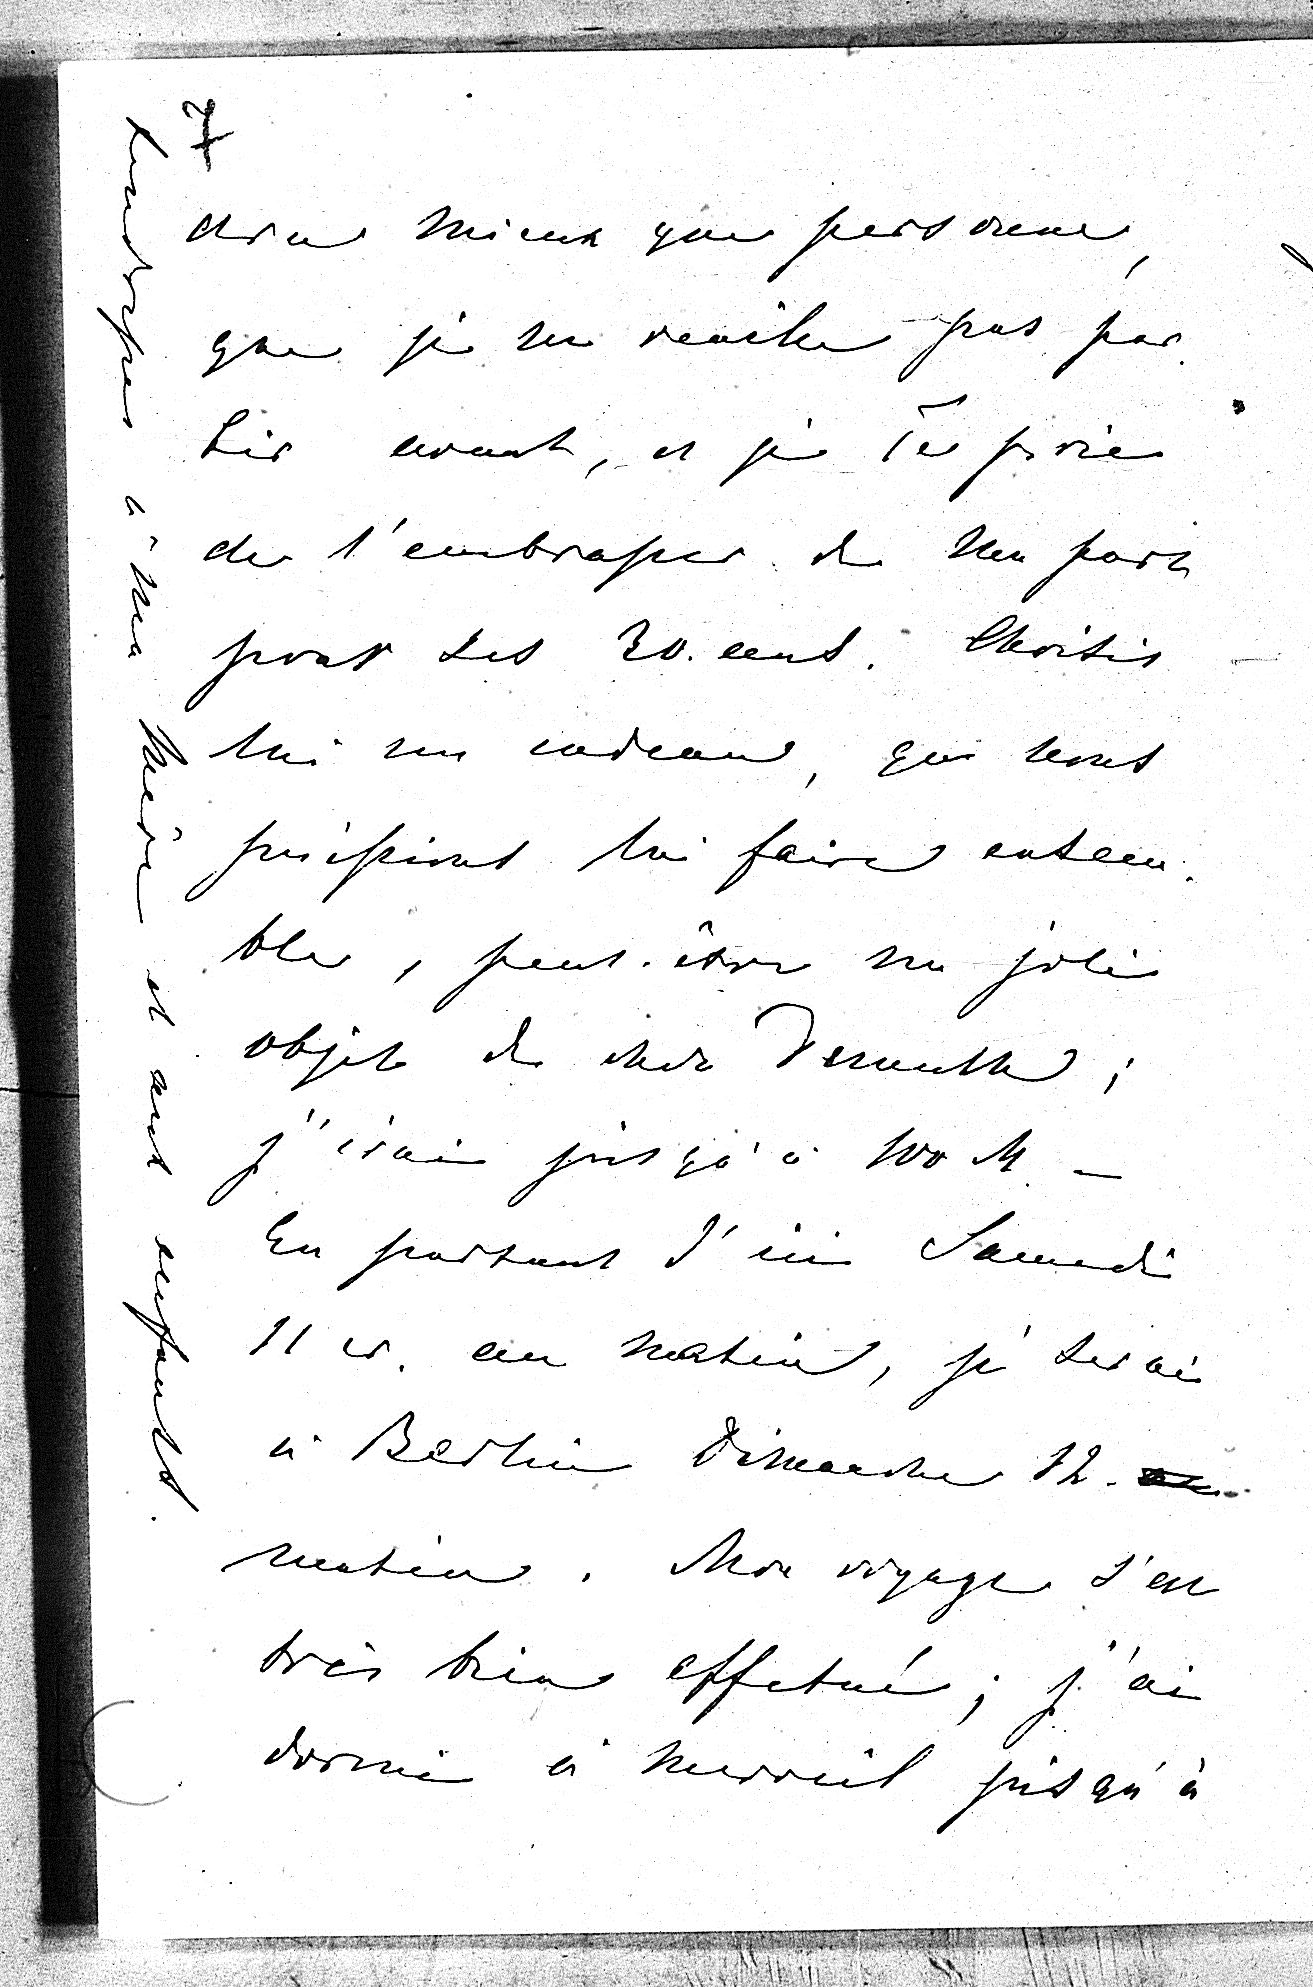 dra mieux que personne,
que je ne veuille pas par-
tir avant, et je Te prie
de l'embrasser de ma part
pour ses 20. ans. Choisis
lui un cadeau, que nous
puissions lui faire ensem-
ble, peut-être un joli
objet de chez
j'irai jusqu'à 100 M. —
En partant d'ici Samedi
11 cr. au matin, je serai
à Berlin Dimanche 12.
matin. Mon voyage s'est
très bien effetué; j'ai
dormi à merveil jusqu'à
tendresses à ma mère et aux enfants.